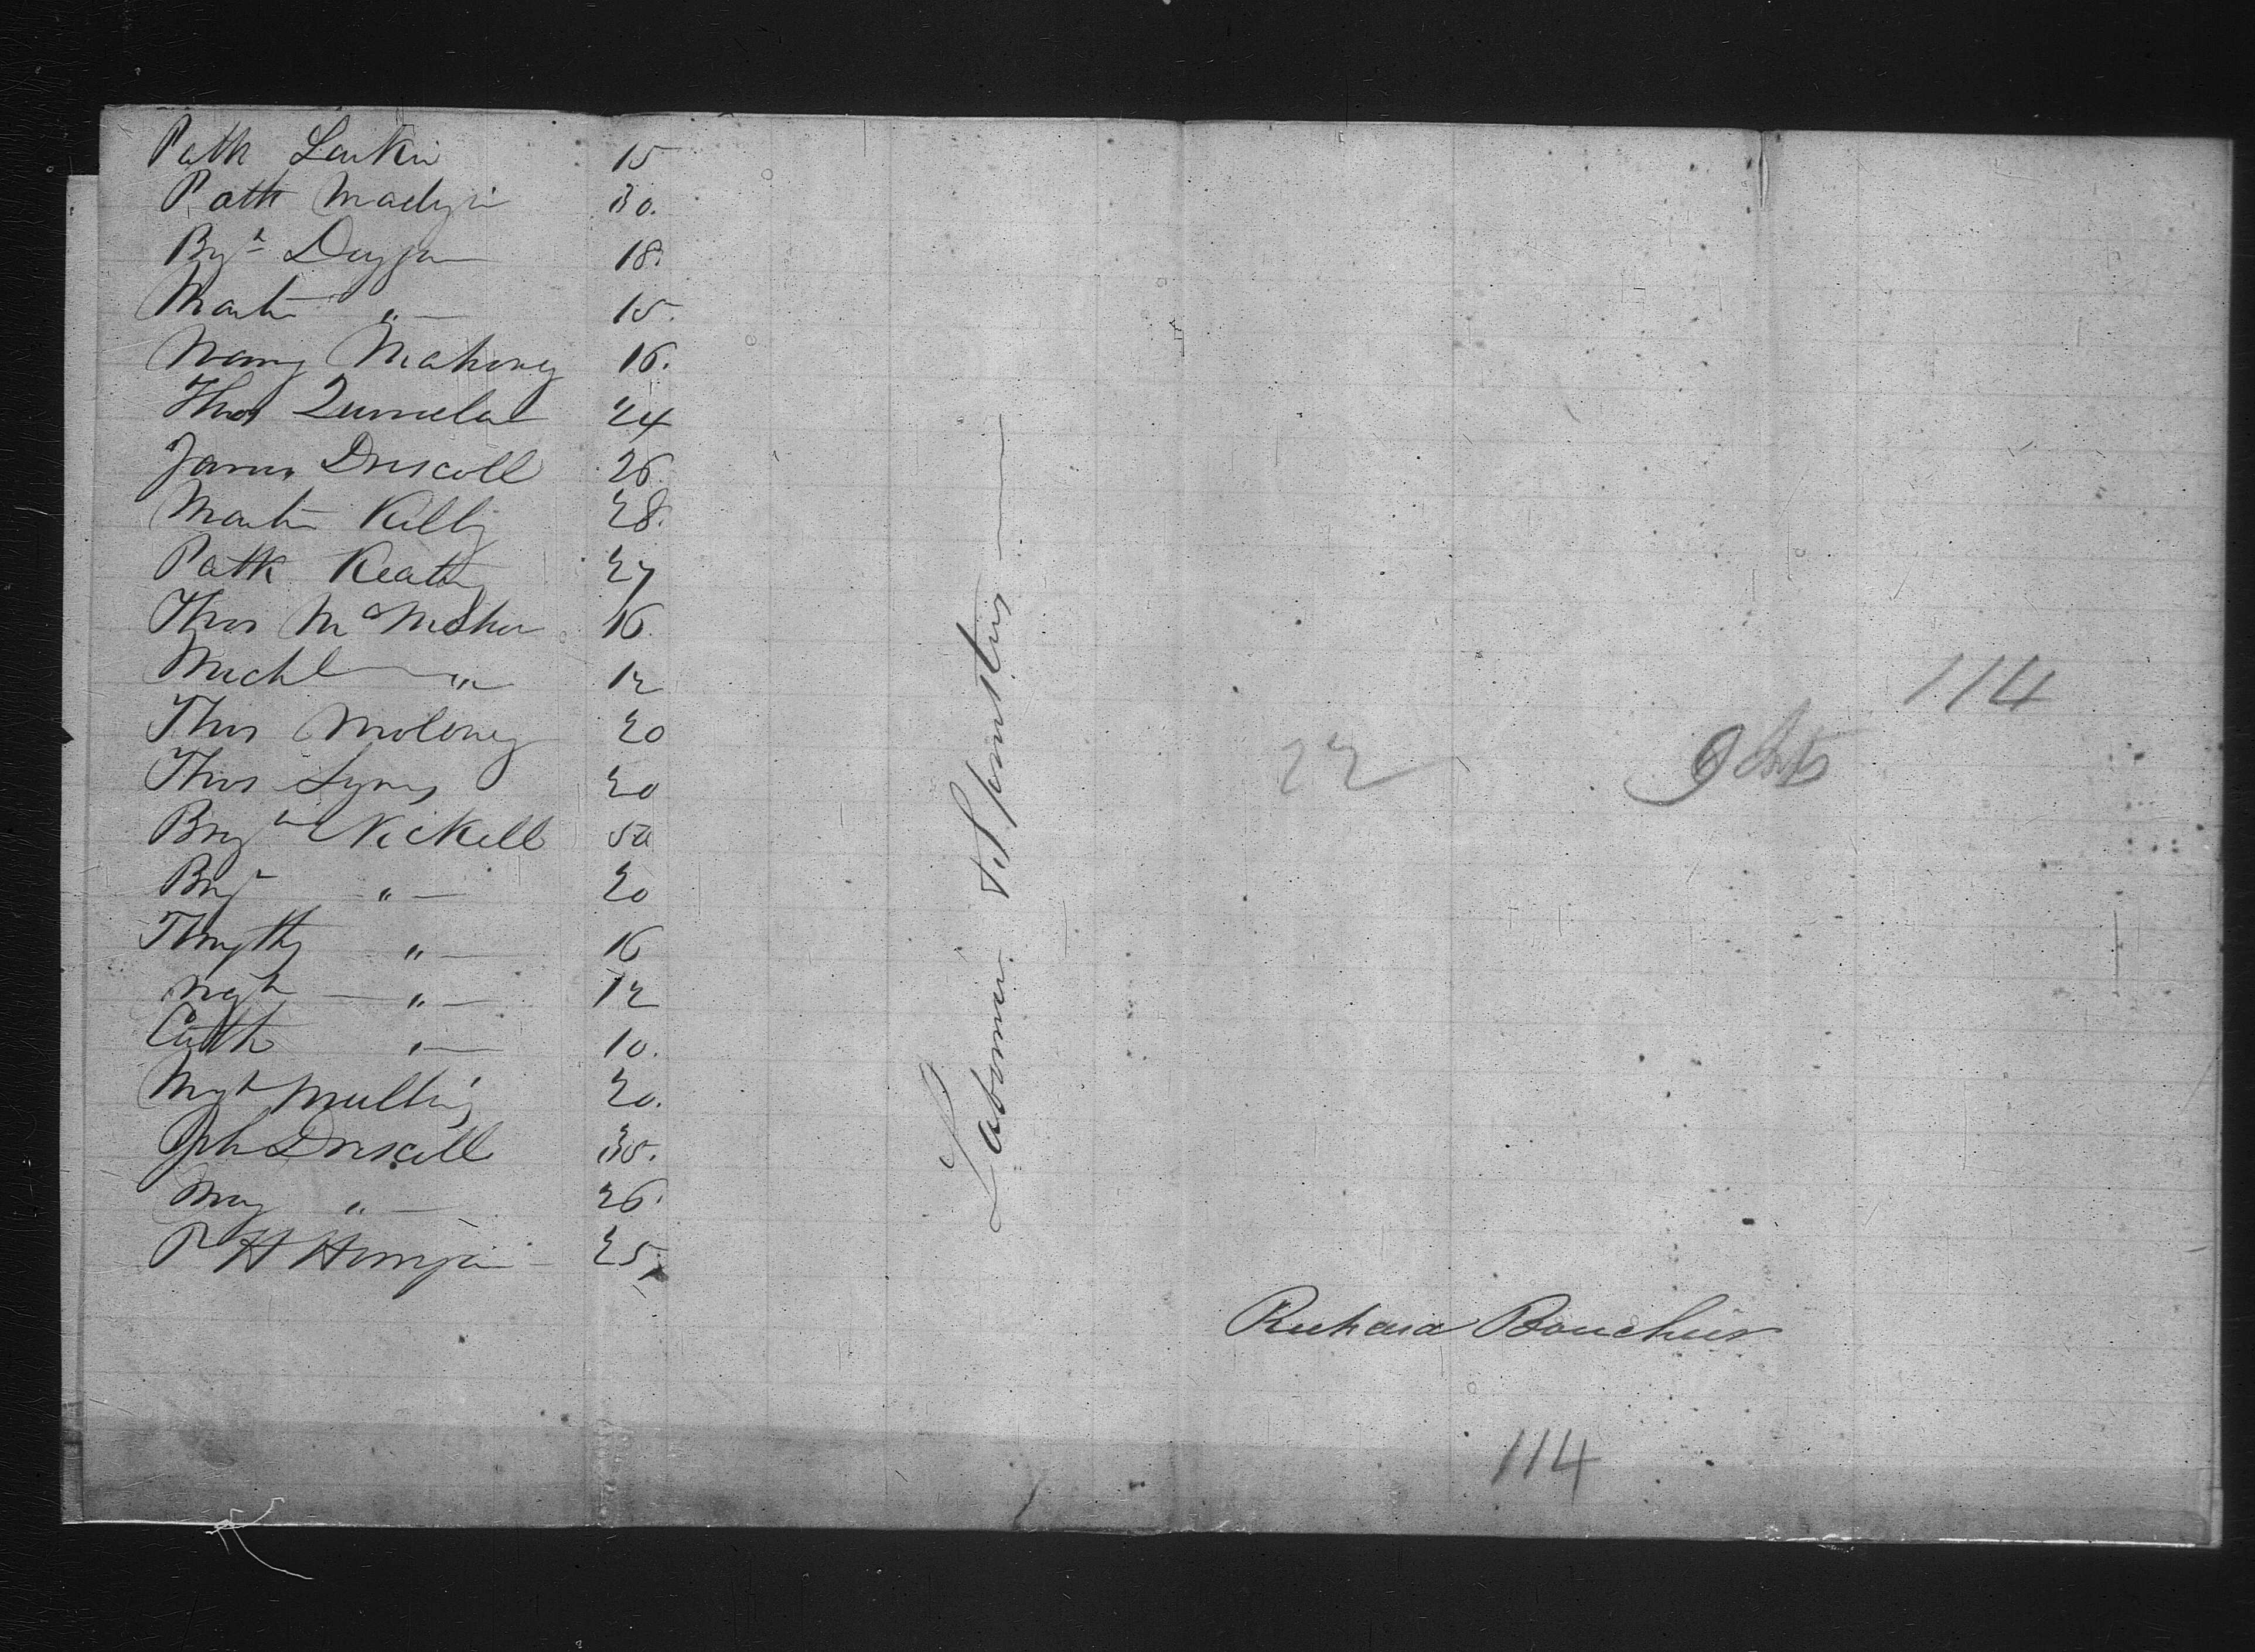 Patk Larkin 15
Patk Madigin 30.
Bgt Duggan 18.
Martin " 15.
Mary Mahoney 16.
Thos Quinelan 24
James Driscoll 26.
Martin Killy 28.
Patk Keating 27
Thos McMaher 16.
Michl " 12
Thos Moloney 20
Thos Lyns 20
Brgt McNickell 50
Brgt " 20
Timythy " 16
Mgt " 12
Cath " 10.
Mgt Mulling 20.
Jph Driscoll 35.
May " 26.
P H Horrigan 25
Labormen & Spinsters
114
22
Richard Bouchier
114